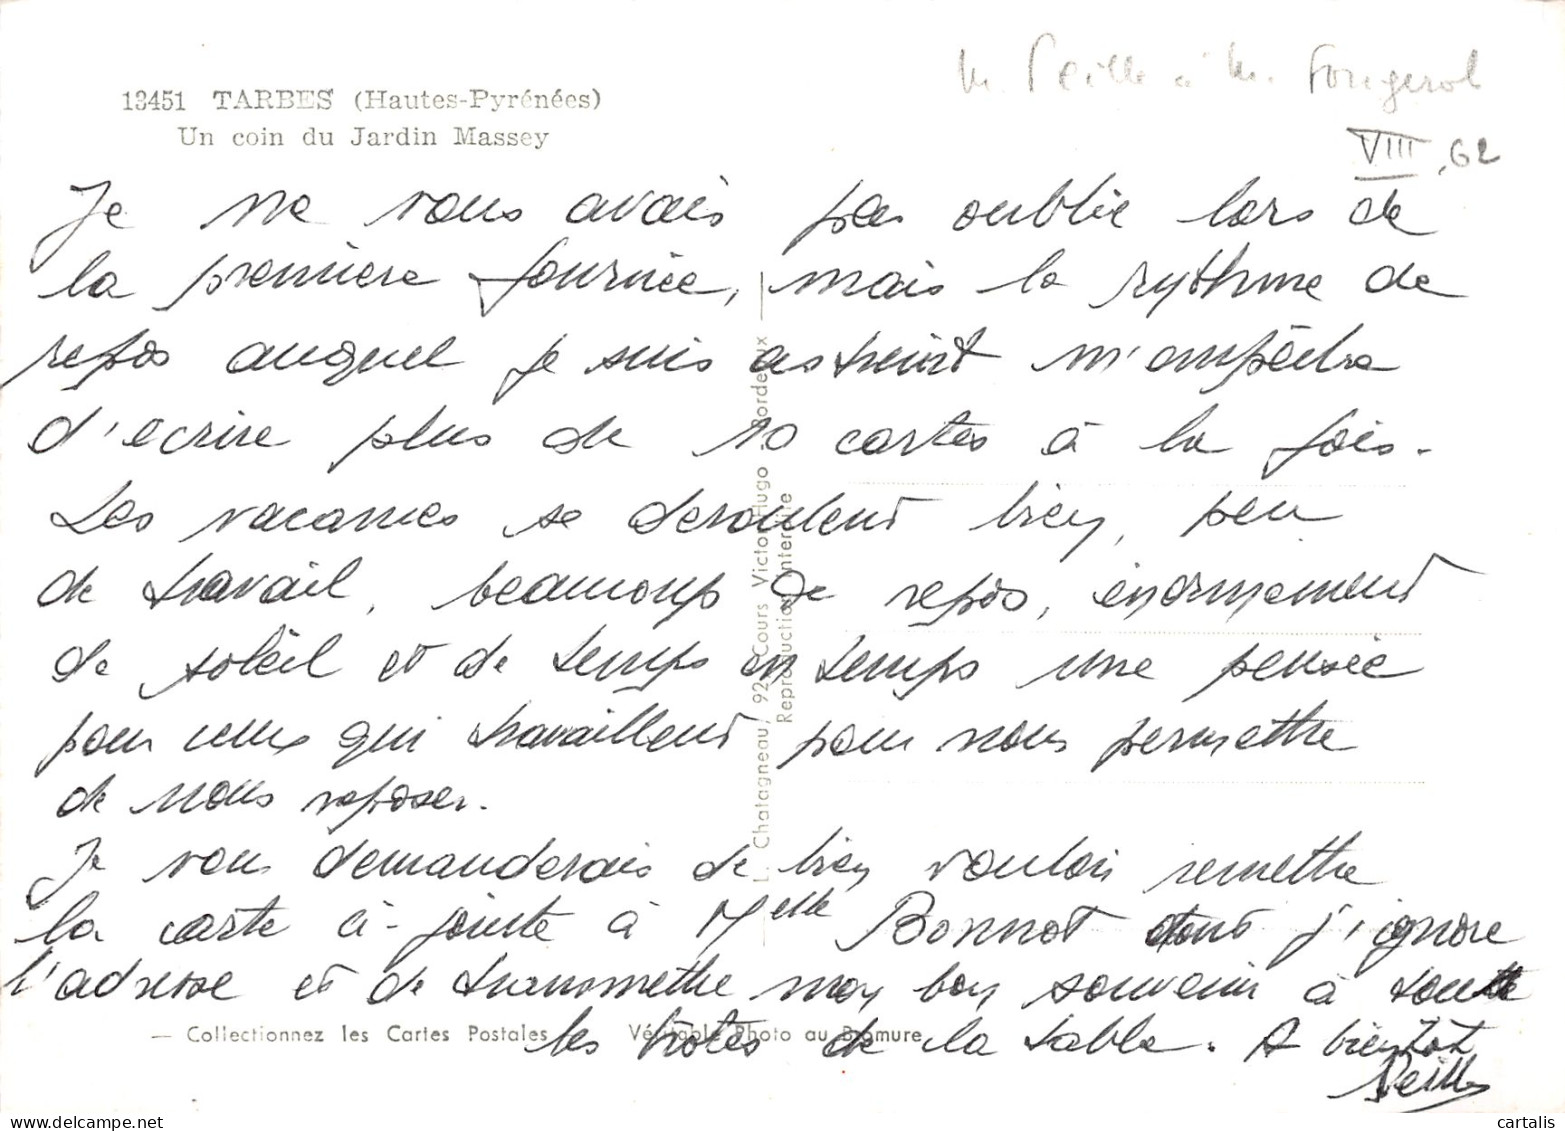 M. Peille à M. Fougerol
VIII.62
13451 TARBES (Hautes-Pyrénées)
Un coin du Jardin Massey
Je ne vous avais pas oublié lors de
la première fournée, mais le rythme de
repos auquel je suis astreint m'empêche
d'écrire plus de 10 cartes à la fois.
Les vacances se déroulent bien, peu
de travail, beaucoup de repos, énormément
de soleil et de temps en temps une pensée
pour ceux qui travaillent pour nous permettre
de nous reposer.
Je vous demanderais de bien vouloir remettre
la carte ci-jointe à Melle Bonnot dont j'ignore
l'adresse et de transmettre mon bon souvenir à toutes
les hôtes de la table. A bientôt
Peille
L. Chatagneau, 92, Cours Victor Hugo - Bordeaux
Reproduction interdite
— Collectionnez les Cartes Postales Véritable Photo au Bromure
cartalis.com